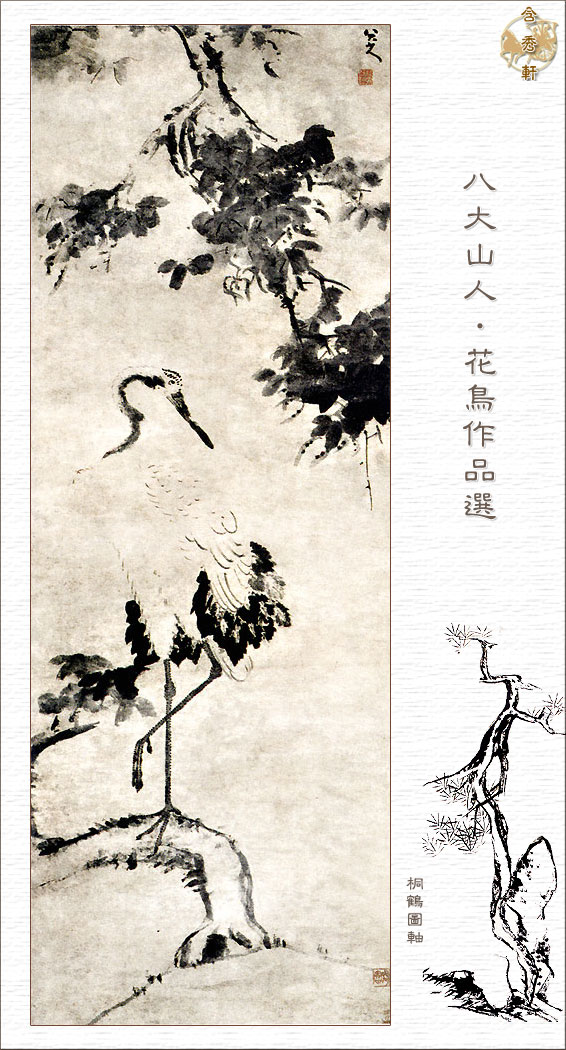 含秀軒
八大山人・花鳥作品選
桐鶴圖軸